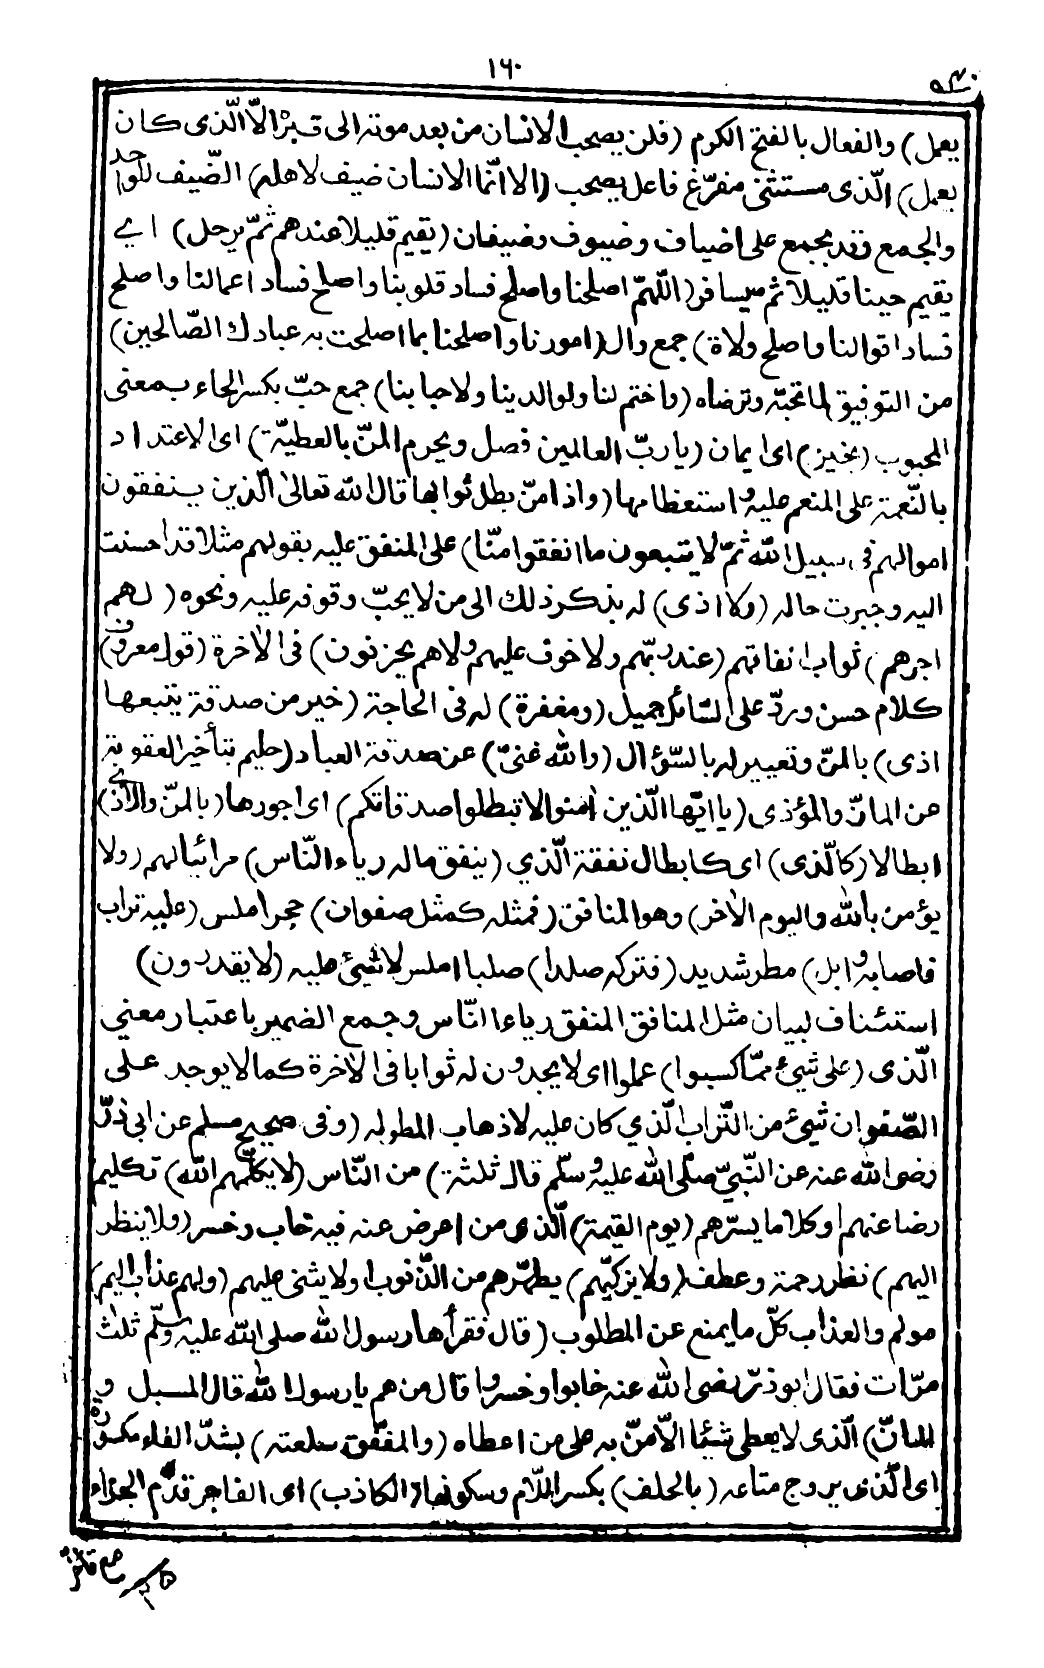 ١٦٠
يعمل) والفعال بالفتح الكرم (فلن يصحب الانسان من بعد موته الى قبره الّا الّذى كان
يعمل) الّذى مستثنى مفرّغ فاعل يصحب (الا انّما الانسان ضيف لاهله) الضّيف للواحد
والجمع وقد يجمع على اضياف وضيوف وضيفان (يقيم قليلا عندهم ثمّ يرحل) اي
يقيم حينا قليلا ثم يسافر (اللّهمّ اصلحنا واصلح فساد قلوبنا واصلح فساد اعمالنا واصلح
فساد اقوالنا واصلح ولاة) جمع وال (امورنا واصلحنا بما اصلحت به عبادك الصّالحين)
من التوفيق لما تحبّه وترضاه (واختم لنا ولوالدينا ولاحبابنا) جمع حبّ بكسر الحاء بمعنى
المحبوب (بخير) اى ايمان (يا ربّ العالمين فصل ويحرم المنّ بالعطيّة) اى الاعتداد
بالنّعمة على المنعم عليه واستعظامها (واذا منّ بطل ثوابها قال الله تعالى الّذين ينفقون
اموالهم فى سبيل الله ثمّ لا يتبعون ما انفقوا منّا) على المنفق عليه بقولهم مثلا قد احسنت
اليه وجبرت حاله (ولا اذى) له بذكر ذلك الى من لا يحبّ وقوفه عليه ونحوه (لهم
اجرهم) ثواب انفاقهم (عند ربّهم ولا خوف عليهم ولا هم يحزنون) فى الاخرة (قول معروف)
كلام حسن وردّ على السّائل جميل (ومغفرة) له فى الحاجة (خير من صدقة يتبعها
اذى) بالمنّ وتعيير له بالسّؤال (والله غنىّ) عن صدقة العباد (حليم بتأخير العقوبة
عن المانّ والمؤذى (يا ايّها الّذين اٰمنوا لا تبطلوا صدقاتكم) اى اجورها (بالمنّ والاذى)
ابطالا (كالّذى) اى كابطال نفقة الّذي (ينفق ماله رياء النّاس) مرائيا لهم (ولا
يؤمن بالله واليوم الاٰخر) وهو المنافق (فمثله كمثل صفوان) حجر املس (عليه تراب
فاصابه وابل) مطر شديد (فتركه صلدا) صلبا املس لا شيئ عليه (لا يقدرون)
استئناف لبيان مثل المنافق المنفق رياءا انّاس وجمع الضمير باعتبار معني
الّذى (على شيئ ممّا كسبوا) عملوا اى لا يجدون له ثوابا فى الاخرة كما لا يوجد على
الصّفوان شيئ من التّراب الّذي كان عليه لاذهاب المطر له (وفى صحيح مسلم عن ابى ذرّ
رضى الله عنه عن النّبىّ صلّى الله عليه وسلّم قال ثلثة) من النّاس (لا يكلّمهم الله) تكليم
رضا عنهم او كلاما يسرّهم (يوم القيمة) الّذى من اعرض عنه فيه خاب وخسر (ولا ينظر
اليهم) نظر رحمة وعطف (ولا يزكّيهم) يطهّرهم من الذّنوب او لا يثنى عليهم (ولهم عذاب اليم)
مولم والعذاب كلّ ما يمنع عن المطلوب (قال فقرأها رسول الله صلى الله عليه وسلّم ثلاث
مرّات فقال ابو ذرّ رضى الله عنه خابوا وخسروا قال من هم يا رسول الله قال المسبل و
المانّ) الّذى لا يعطى شيئا الّا منّ به على من اعطاه (والمنفّق سلعته) بشدّ الفاء مكسورة
اى الّذى يروج متاعه (بالحلف) بكسر اللّام وسكونها (الكاذب) اى الفاجر قدّم الجزاء